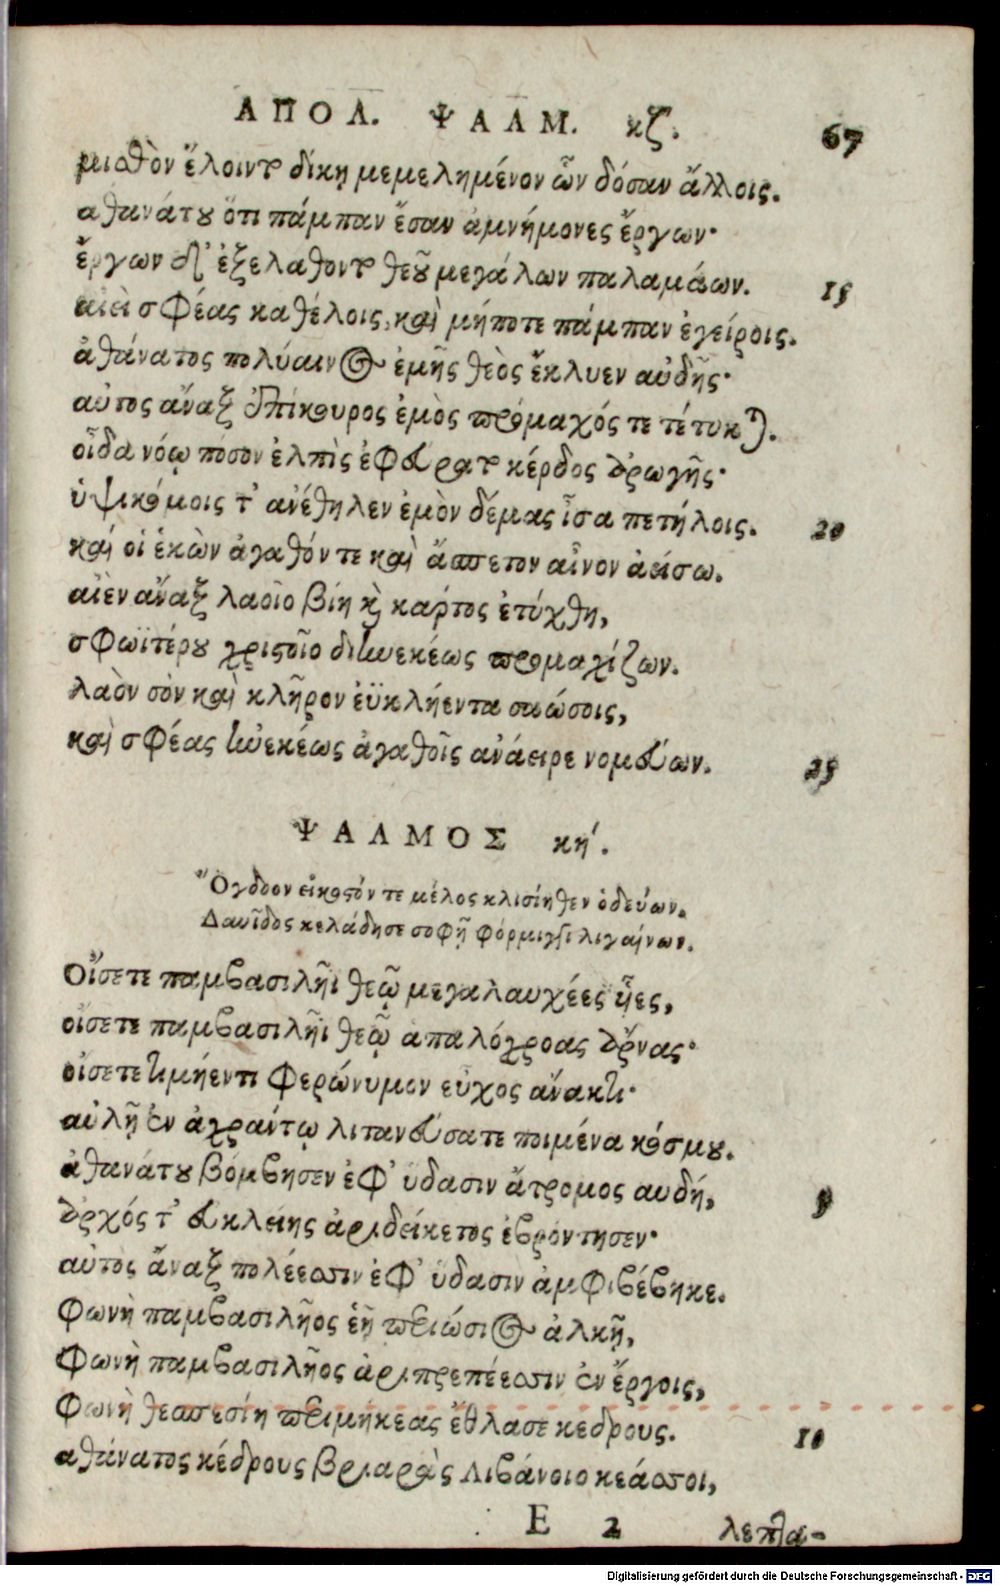 ΑΠΟΛ. ΨΑΛΜ. κζ. 67
μισθὸν ἕλοιντο δίκῃ μεμελημένον ὧν δόσαν ἄλλοις.
ἀθανάτου ὅτι πάμπαν ἔσαν ἀμνήμονες ἔργων·
ἔργων δ' ἐξελαθοντο θεοῦ μεγάλων παλαμάων. 15
αἰεὶ σφέας καθέλοις, καὶ μήποτε πάμπαν ἐγείροις.
ἀθάνατος πολύαινος ἐμῆς θεὸς ἔκλυεν αὐδῆς·
αὐτος ἄναξ ἐπίκουρος ἐμὸς πρόμαχός τε τέτυκται.
οἶδα νόῳ πόσον ἐλπὶς ἐφεύρατο κέρδος ἀρωγῆς·
ὑψικόμοις τ' ἀνέθηλεν ἐμὸν δέμας ἶσα πετήλοις. 20
καί οἱ ἑκὼν ἀγαθόν τε καὶ ἄσπετον αἶνον ἀείσω.
αἰὲν ἄναξ λαοῖο βίη καὶ κάρτος ἐτύχθη,
σφωϊτέρου χριστοῖο διηνεκέως προμαχίζων.
λαὸν σὸν καὶ κλῆρον ἐϋκλήεντα σαώσοις,
καὶ σφέας ἠνεκέως ἀγαθοῖς ἀνάειρε νομεύων. 25
ΨΑΛΜΟΣ κή.
Ὄγδοον εἰκοστόν τε μέλος κλισίηθεν ὁδεύων.
Δαυῖδος κελάδησε σοφῇ φόρμιγγι λιγαίνων.
Οἴσετε παμβασιλῆϊ θεῷ μεγαλαυχέες ἧες,
οἴσετε παμβασιλῆϊ θεῷ ἁπαλόχροας ἄρνας·
οἴσετε τιμήεντι φερώνυμον εὖχος ἄνακτι·
αὐλῇ ἐν ἀχράντῳ λιτανεύσατε ποιμένα κόσμου.
ἀθανάτου βόμβησεν ἐφ' ὕδασιν ἄτρομος αυδή, 5
ἀρχός τ' εὐκλειής ἀριδείκετος ἐβρόντησεν·
αὐτὸς ἄναξ πολέεσσιν ἐφ' ὕδασιν ἀμφιβέβηκε.
φωνὴ παμβασιλῆος ἑῇ περιώσιος ἀλκῇ,
φωνὴ παμβασιλῆος ἀριπρεπέεσσιν ἐν ἔργοις,
φωνὴ θεσπεσίη περιμήκεας ἔθλασε κεδρους. 10
ἀθάνατος κέδρους βριαρὰς Λιβάνοιο κεάσσοι,
E 2 λεπτα-
Digitalisierung gefördert durch die Deutsche Forschungsgemeinschaft - DFG